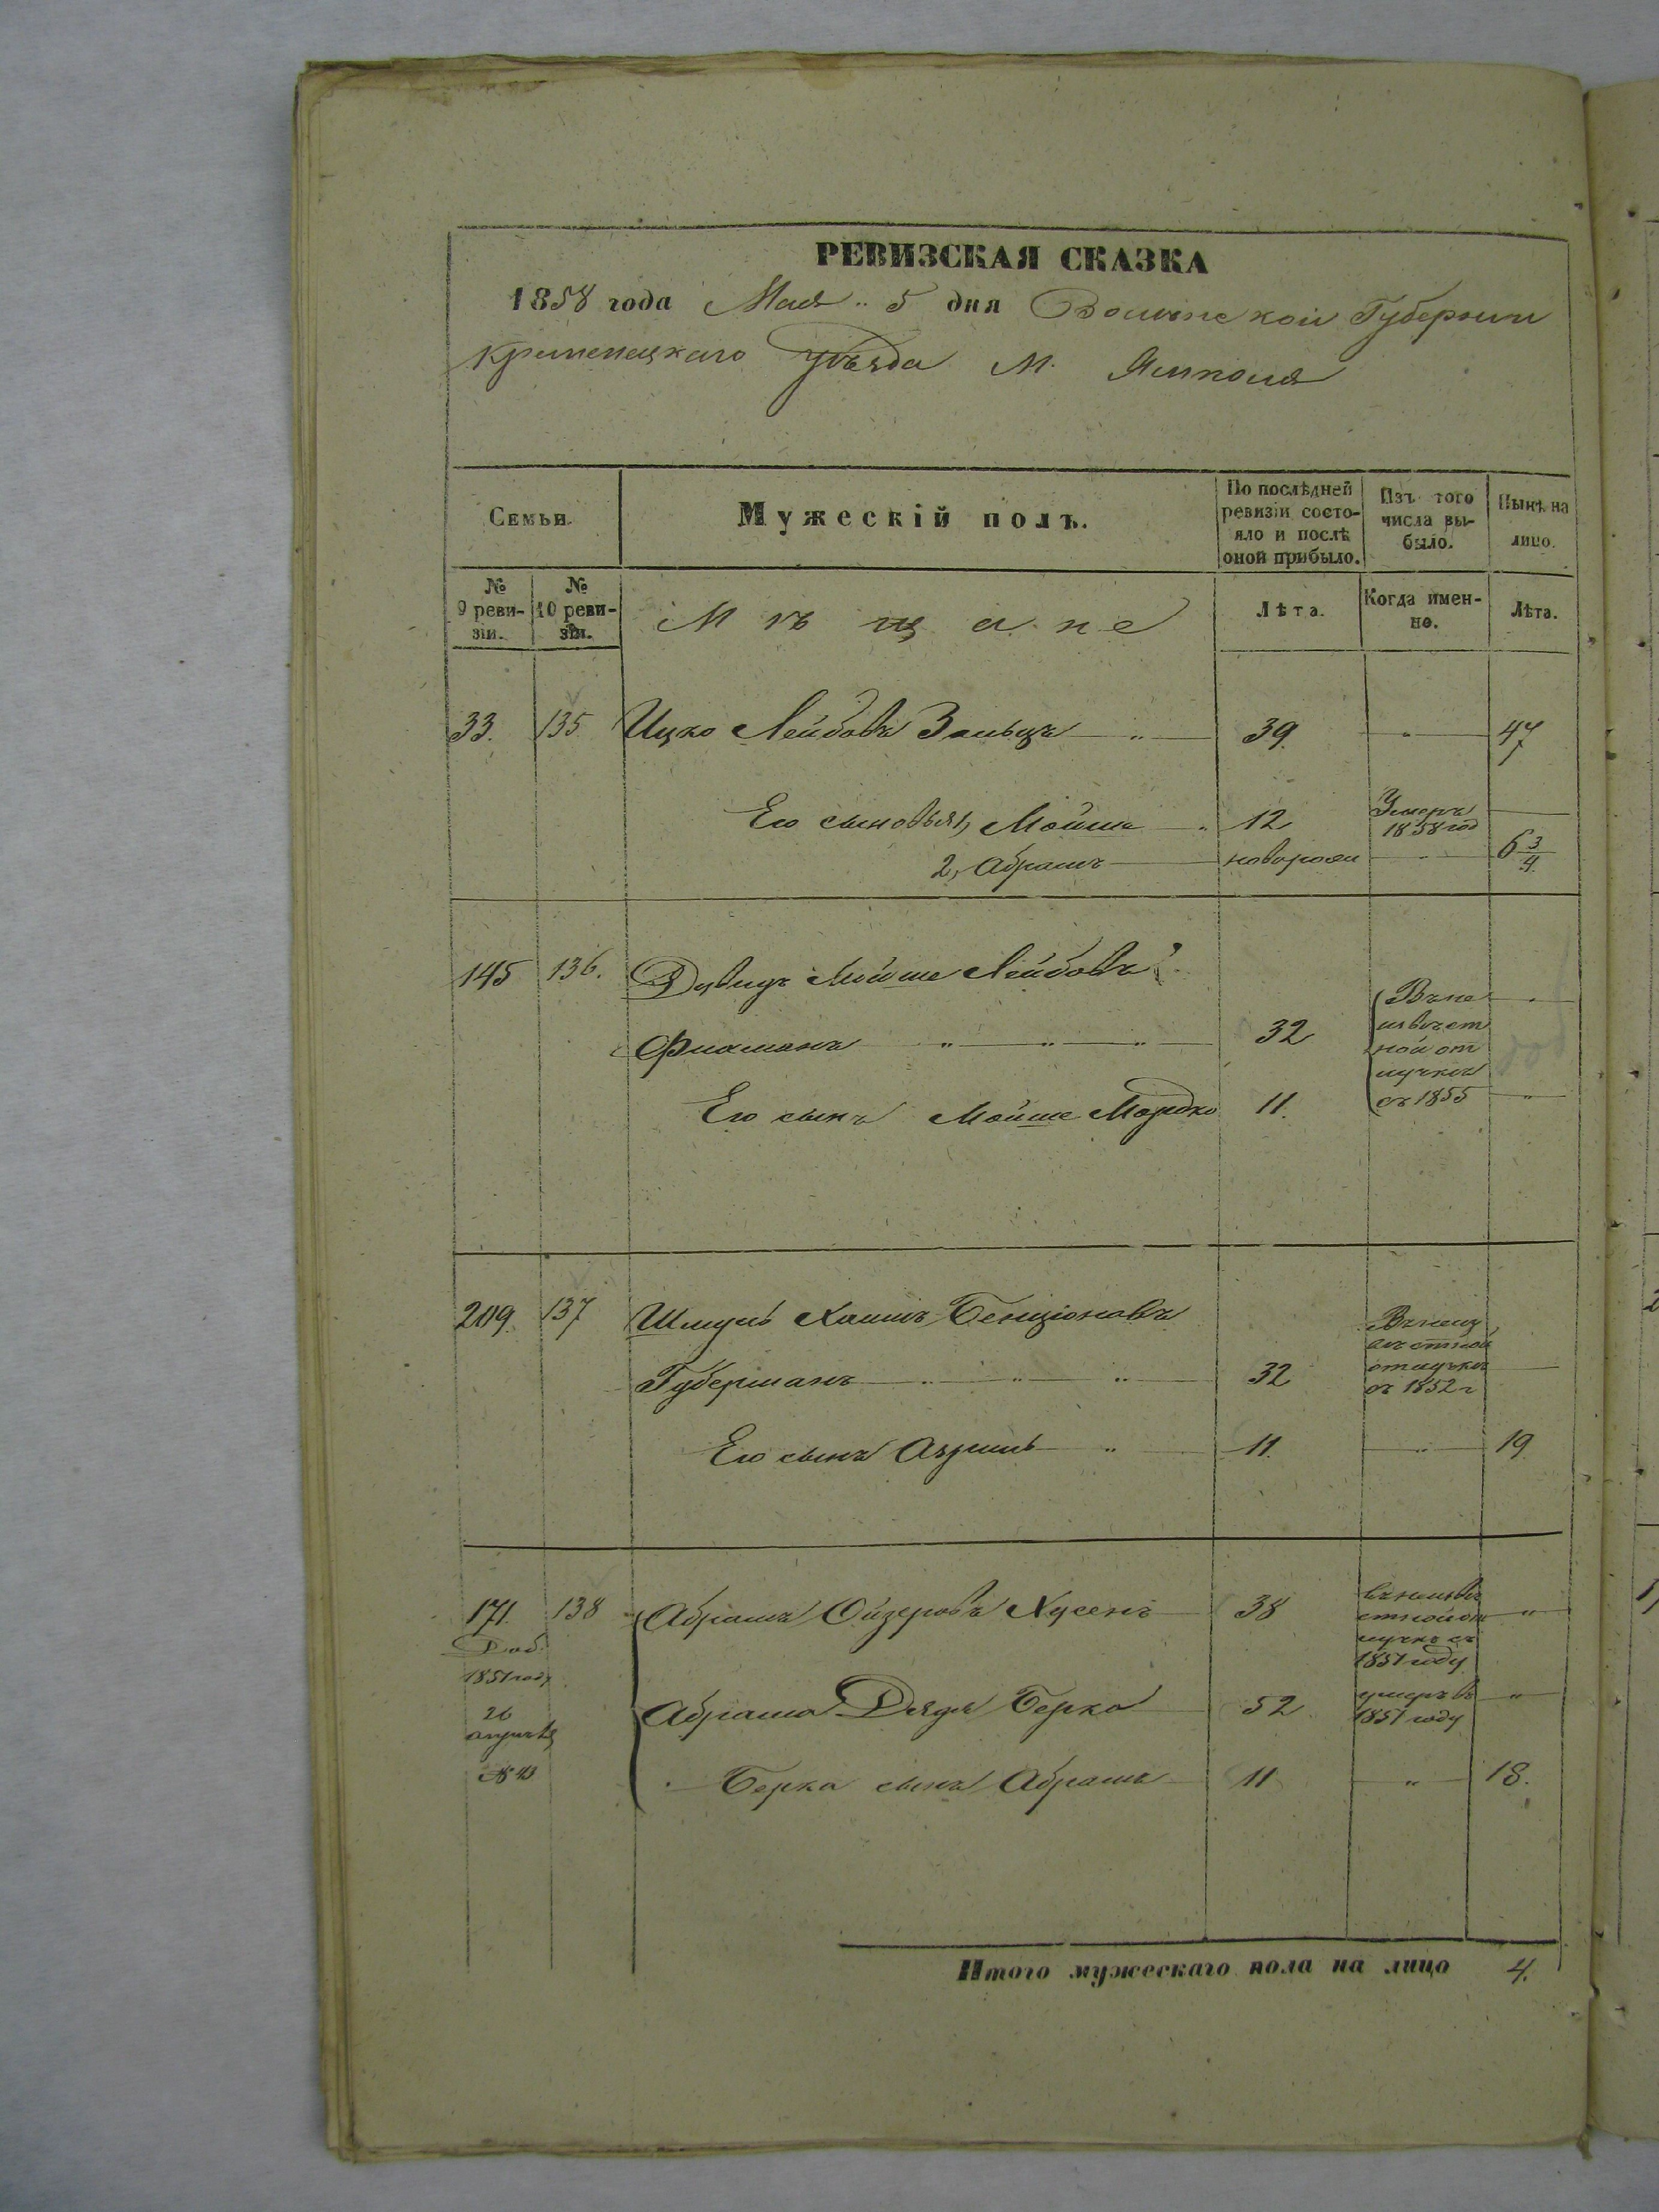 РЕВИЗСКАЯ СКАЗКА
1858 года Мая 5 дня Волынской Губернии
Кременецкаго Уѣзда М. Ямполя
Семьи.
Мужескій полъ.
По послѣдней ревизіи состояло и послѣ оной прибыло.
Изъ того числа выбыло.
Нынѣ на лицо.
№ 9 ревизіи.
№ 10 ревизіи.
Мѣщане
Лѣта.
Когда именно.
Лѣта.
33. 135 Ицко Лейбовъ Зальцъ 39. " 47
Его сыновья 1, Мойше 12 Умеръ 1858 год
2, Абрамъ новорож " 6 3/4
145 136. Давидъ Мойше Лейбовъ
32 Въ неизвѣстной отлучкѣ съ 1855 "
Его сынъ Мойше Мордко 11. "
209. 137 Шмуль Хаимъ Бенціоновъ
Губерманъ 32 Въ неизвѣстной отлучкѣ съ 1852 г
Его сынъ 11. " 19
171. 138 Абрамъ Ойзеровъ Хусенъ 38 въ неизвѣстной отлучкѣ съ 1851 году "
Доб.
1851 году
26
№ 43
Абрама Дядя Берко 52 умеръ въ 1851 году "
Берка сынъ Абрамъ 11 " 18.
Итого мужескаго пола на лицо 4.